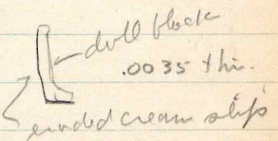 dull black
.0035 thi.
eroded cream slip